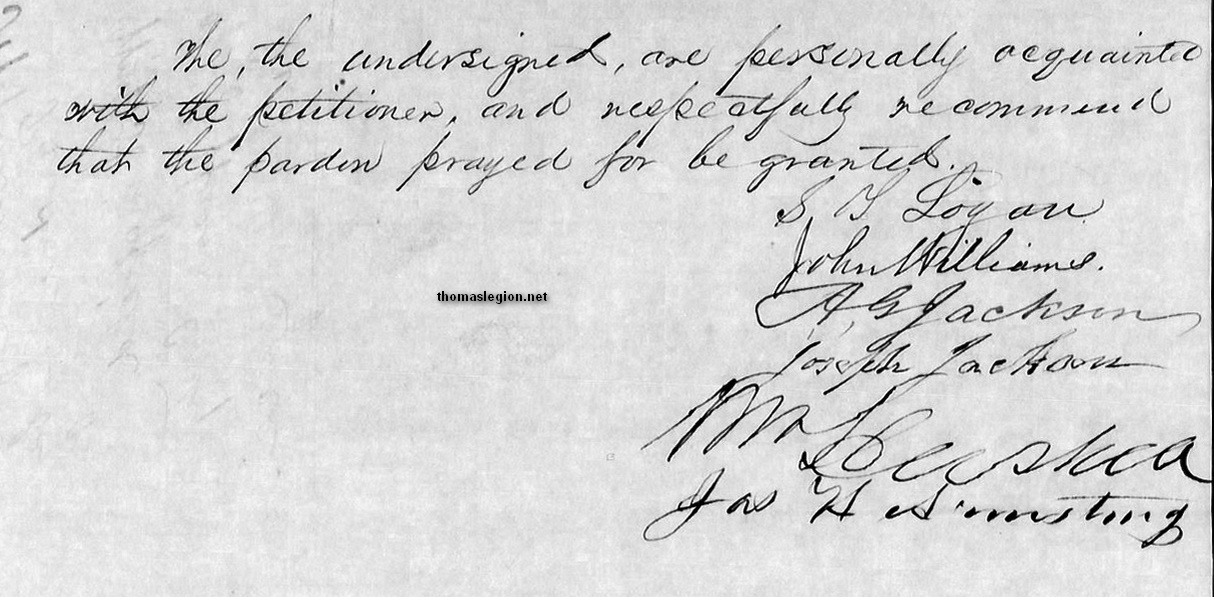 We, the undersigned, are personally acquainted
with the petitioner, and respectfully recommend
that the pardon prayed for be granted.
S. T. Logan
John Williams.
thomaslegion.net
A, G Jackson
Joseph Jackson
Wm
Jas H Armstrong